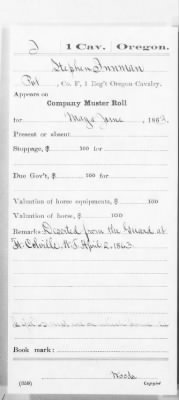 1 Cav. Oregon.
Stephen
Pvt, Co. F, 1 Reg't Oregon Cavalry.
Appears on
Company Muster Roll
for May & June, 1863.
Present or absent
Stoppage, $ 100 for
Due Gov't, $ 100 for
Valuation of horse equipments, $ 100
Valuation of horse, $ 100
Remarks: Deserted from the Guard at
Ft. Colville, W.T. April 2, 1863
Book mark:
Woods
(358) Copyist